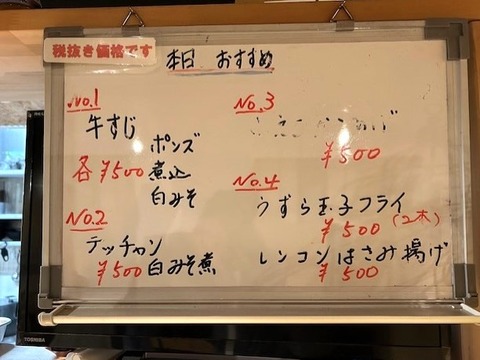 税抜き価格です
本日 おすすめ
No.1
牛すじ
各 ¥500
ポンズ
煮込
白みそ
No.2
テッチャン
¥500 白みそ煮
No.3
¥500
No.4
うずら玉子フライ
¥500 (2本)
レンコンはさみ揚げ
¥500
TOSHIBA